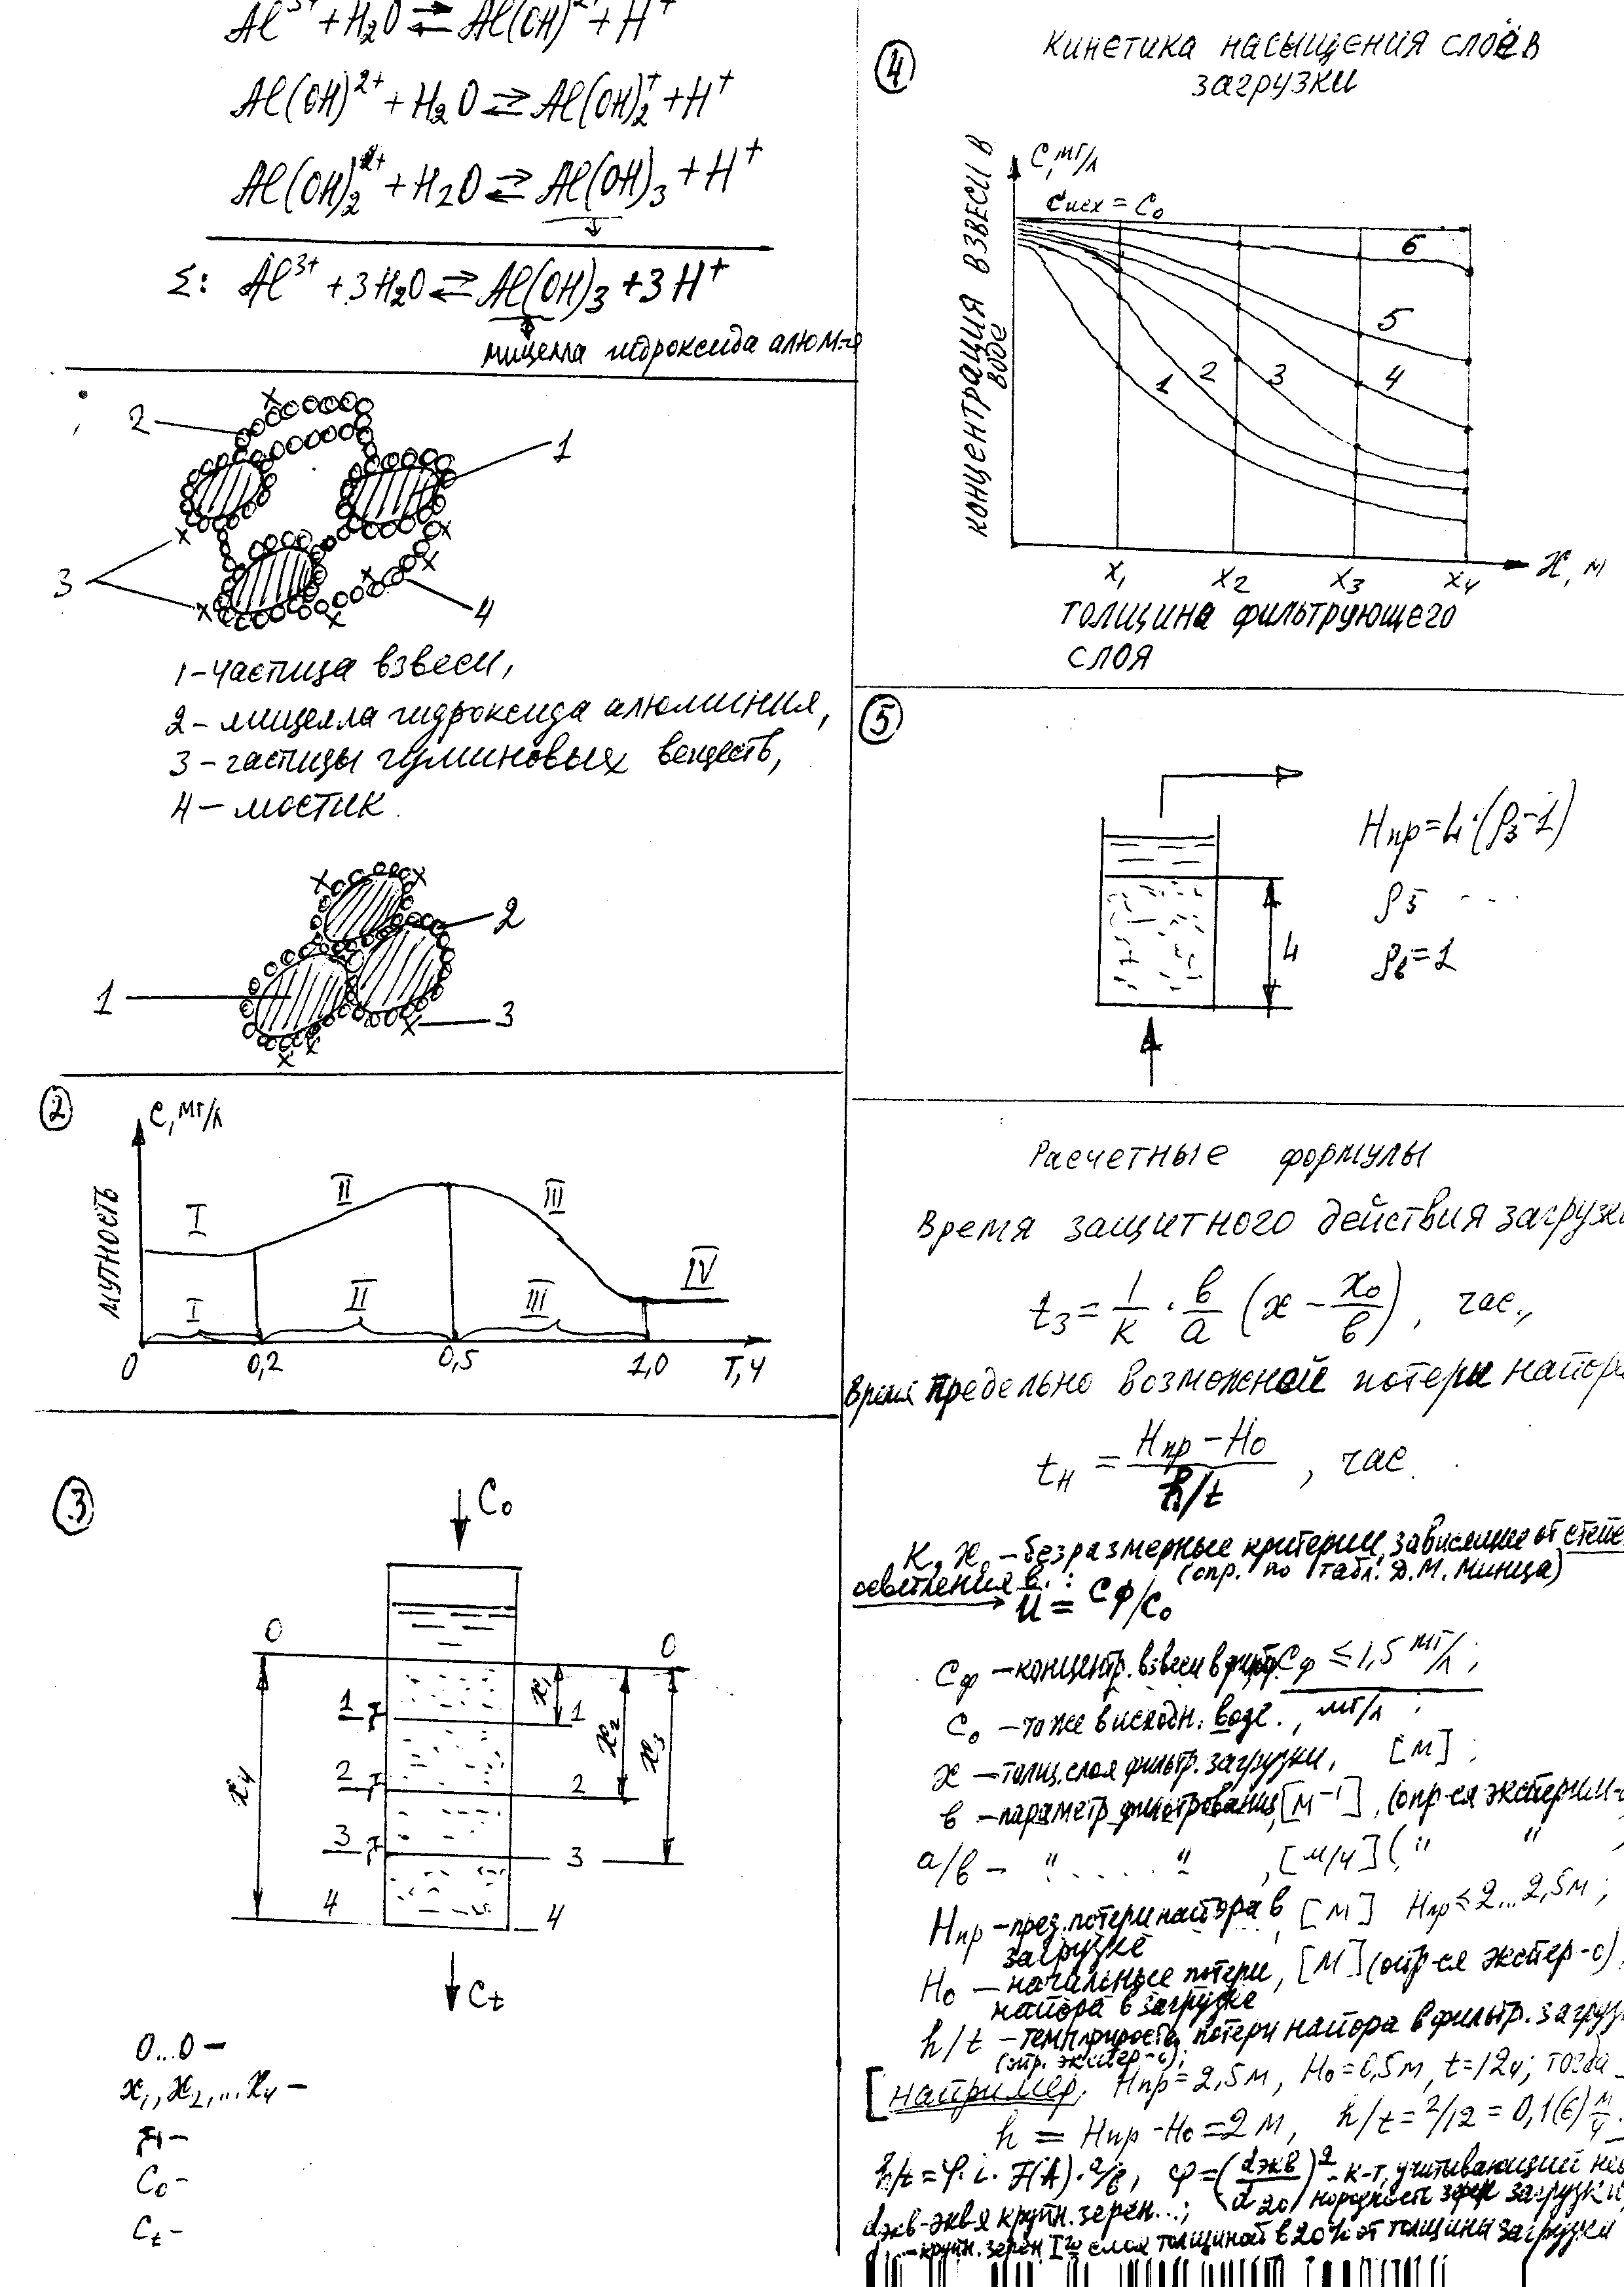 Al³⁺ + H₂O ⇄ Al(OH)²⁺ + H⁺
Al(OH)²⁺ + H₂O ⇄ Al(OH)₂⁺ + H⁺
Al(OH)₂⁺ + H₂O ⇄ Al(OH)₃ + H⁺
Σ: Al³⁺ + 3H₂O ⇄ Al(OH)₃ + 3H⁺
мицелла гидроксида алюм-я
2
1
3
4
1 – частица взвеси,
2 – мицелла гидроксида алюминия,
3 – частицы гуминовых веществ,
4 – мостик
2
1
3
2
С, мг/л
МУТНОСТЬ
I
II
III
IV
I
II
III
0
0,2
0,5
1,0
Т, ч
3
C₀
0
0
x₁
x₂
x₃
x₄
1
1
2
2
3
3
4
4
Ct
0...0 –
x₁, x₂, ... x₄ –
C₀ –
Ct –
4
Кинетика насыщения слоёв
загрузки
КОНЦЕНТРАЦИЯ ВЗВЕСИ В
ВОДЕ
С, мг/л
Cисх = C₀
6
5
4
3
2
1
x₁
x₂
x₃
x₄
x, м
Толщина фильтрующего
слоя
5
Hпр = L·(ρз – 1)
ρз - - -
ρв = 1
L
Расчетные формулы
Время защитного действия загрузки
tз = 1/к · в/а (x – x₀/в), час.,
Время предельно возможной потери напора
tн = (Hпр – H₀)/(h/t), час.
К, x₀ – безразмерные критерии, зависящие от степе
осветления в.: (опр. по табл. Д.М. Минца)
И = Cф/C₀
Cф – концентр. взвеси в фильтр. Cф ≤ 1,5 мг/л;
C₀ – то же в исходн. воде., мг/л;
x – толщ. слоя фильтр. загрузки, [м];
в – параметр фильтрования, [м⁻¹], (опр-ся эксперим-о
а/в – " ..... ", [м/ч] (" "
Hпр – пред. потери напора в [м] Hпр ≤ 2...2,5м;
загрузке
H₀ – начальные потери, [м] (опр-ся экспер-о)
напора в загрузке
h/t – темп прироста потери напора в фильтр. загрузк
(опр. экспер-о);
[например, Hпр = 2,5м, H₀ = 0,5м, t = 12ч; тогда
h = Hпр – H₀ = 2м, h/t = 2/12 = 0,1(6) м/ч.
h/t = φ·i·F(A)·а/в, φ = (dэкв/d20)² – к-т, учитывающий нео
нородность зерен загрузки
dэкв – экв-я крупн. зерен...;
– крупн. зерен Iго слоя толщиной в 20% от толщины загрузки